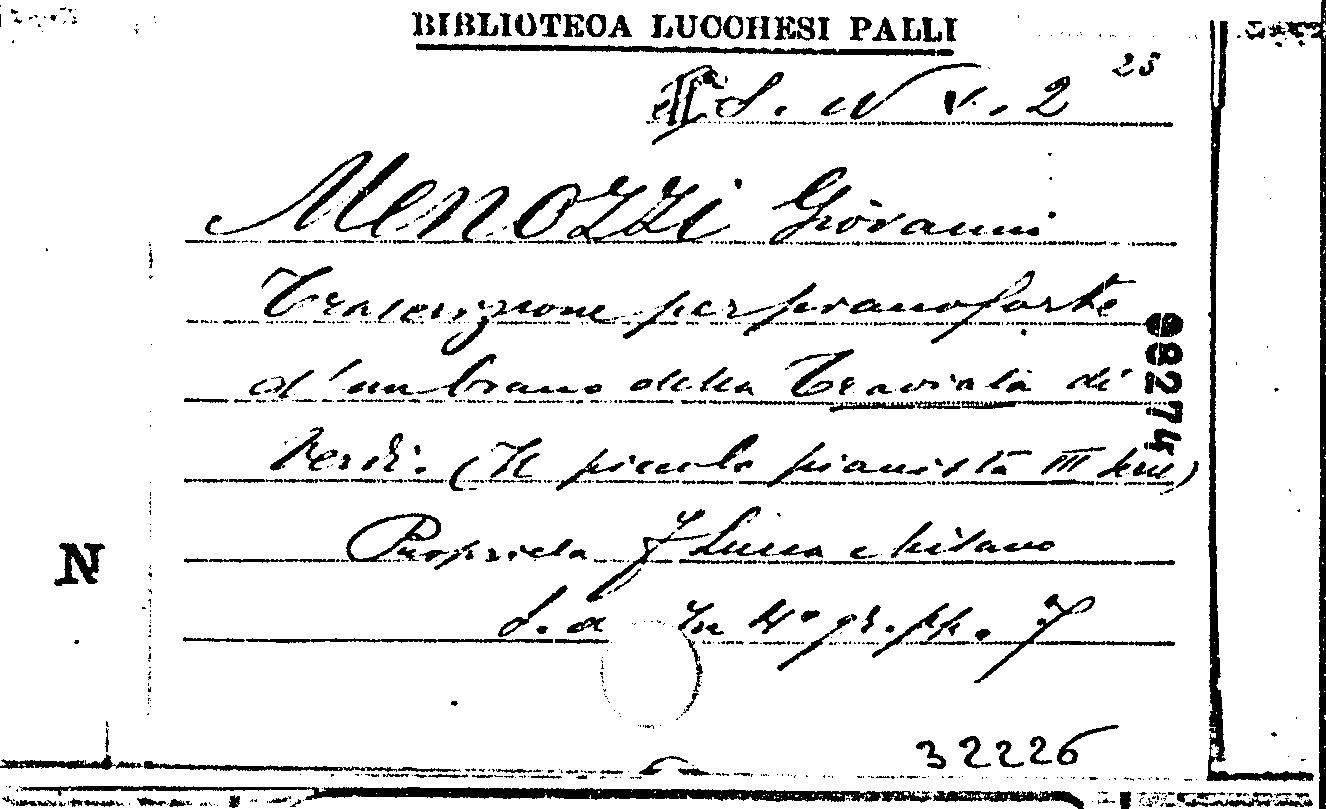 BIBLIOTECA LUCCHESI PALLI
25
S. N V. 2
MENOZZI Giovanni
Trascrizione per pianoforte
d'un brano della Traviata di
Verdi. (Il piccolo pianista III serie)
98274
Proprietà F Lucca Milano
N
S. a In 4° gr. pp. 7
32226